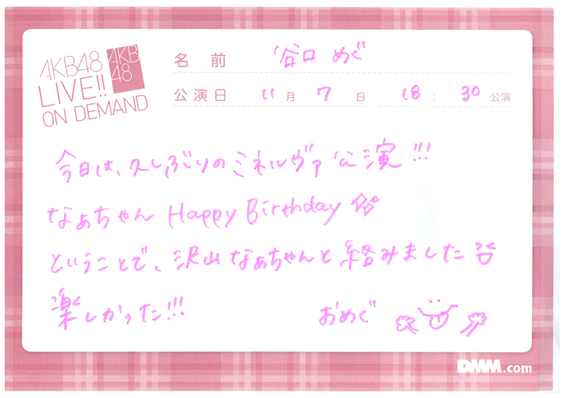 AKB48
LIVE!!
ON DEMAND
AKB
48
名前 谷口 めぐ
公演日 11月 7日 18:30公演
今日は、久しぶりのミネルヴァ公演!!!
なぁちゃん Happy Birthday
ということで、沢山なぁちゃんと絡みました
楽しかった!!!
おめぐ
DMM.com